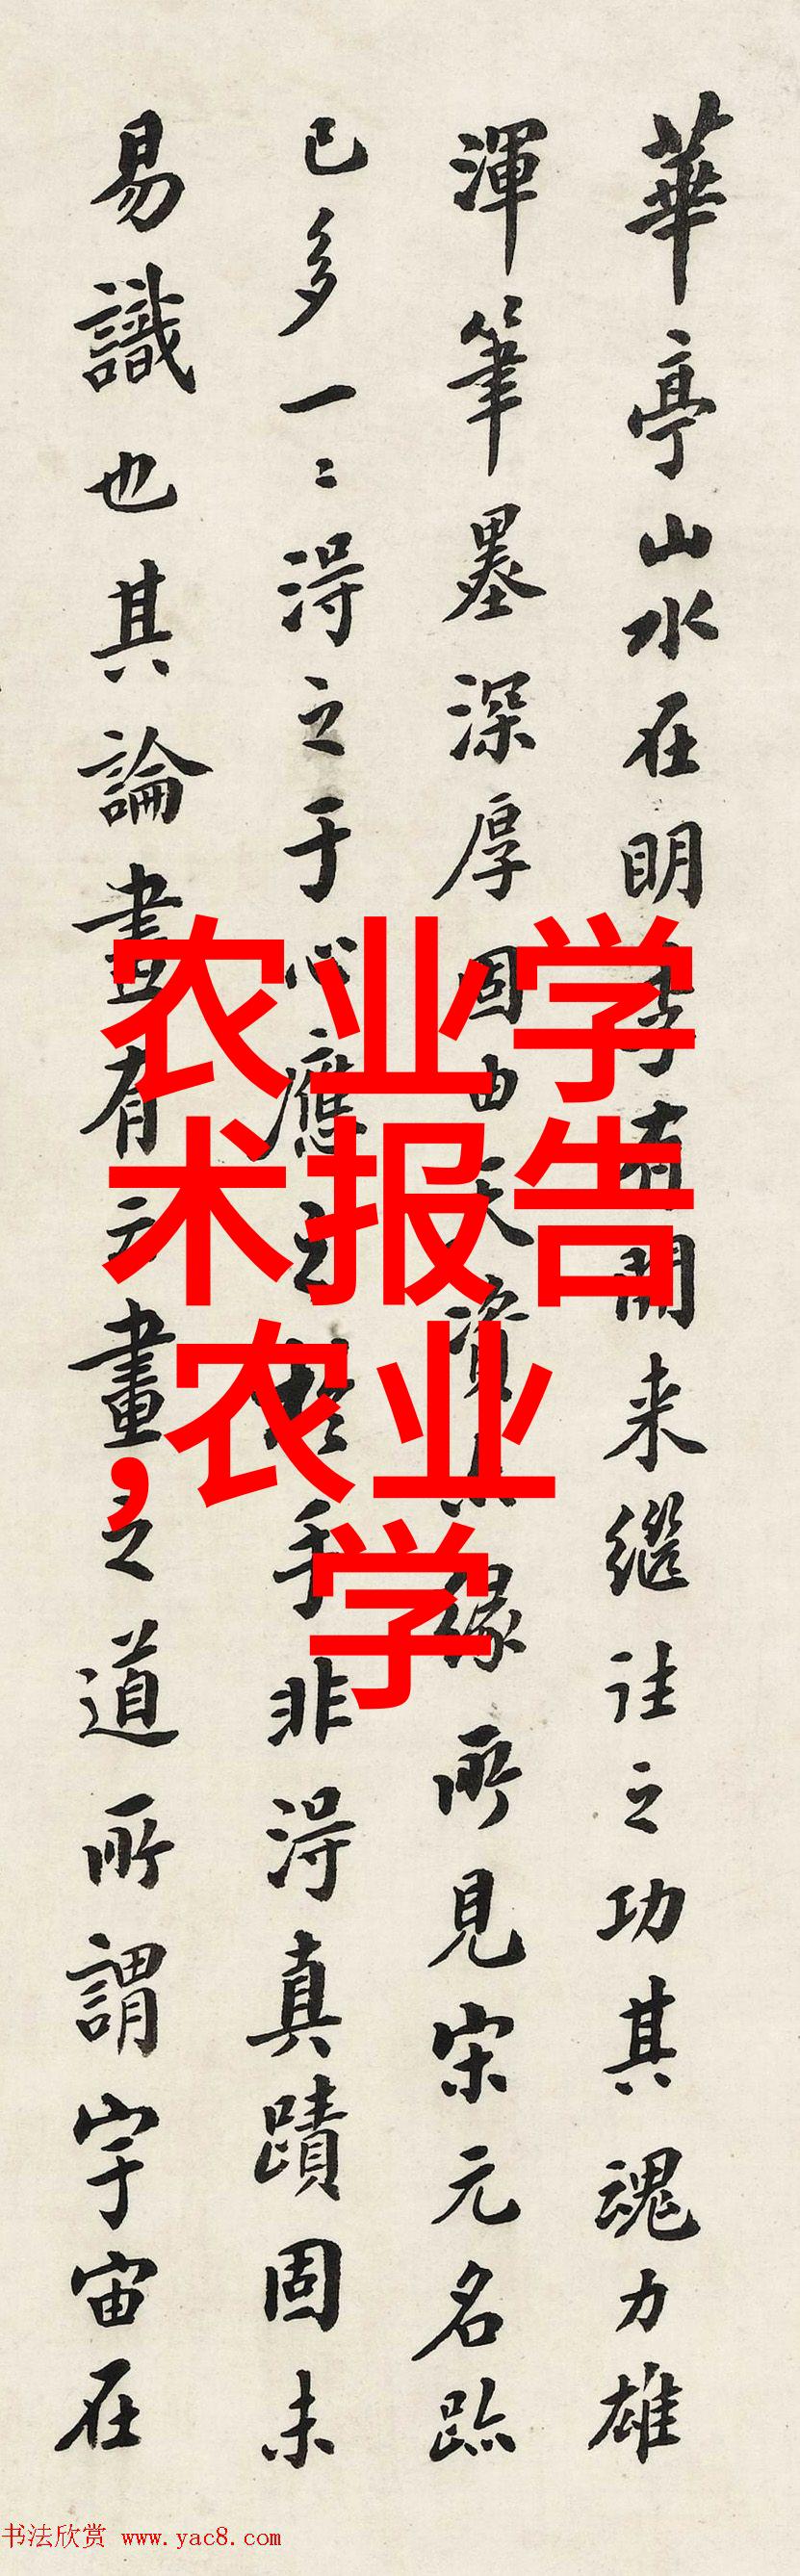 華亭山水在明季有開来繼往之功其魂力雄
渾筆墨深厚固由天資亦緣所見宋元名跡
已多一二得之于心應之於手非得真蹟固未
易識也其論畫有云畫之道所謂宇宙在
农业学
术报告
,农业
学
书法欣赏 www.yac8.com